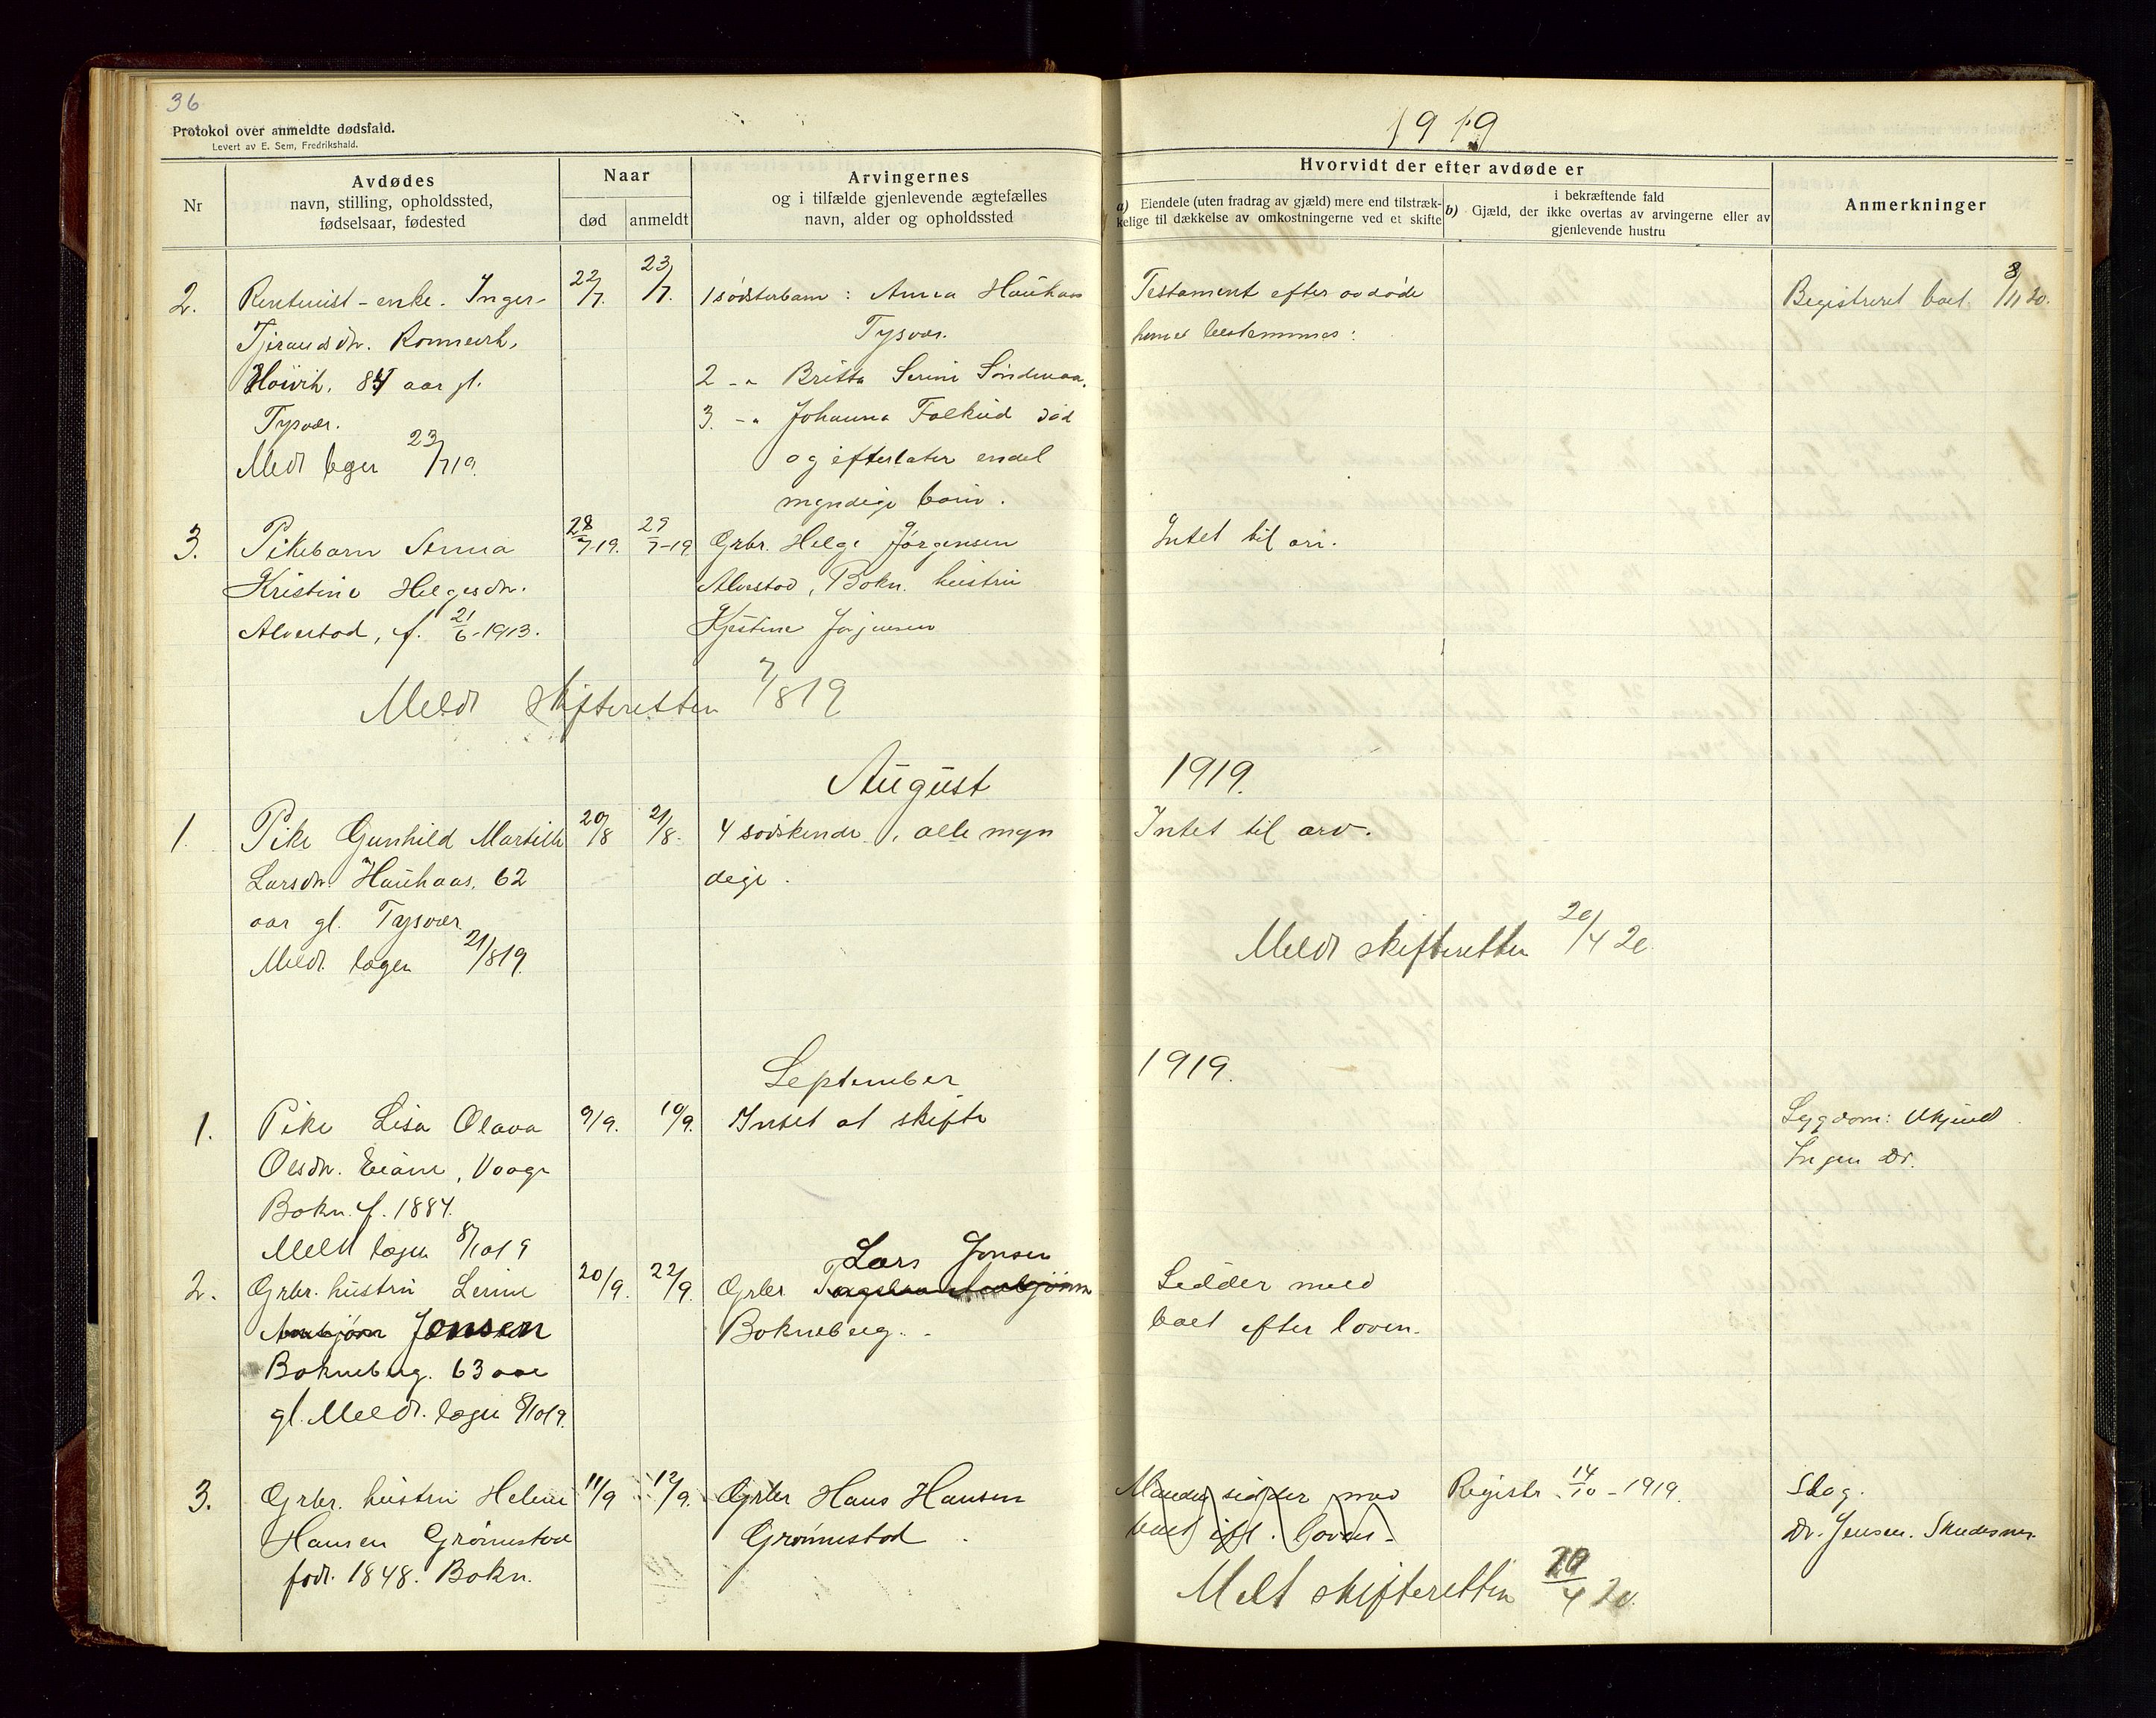 36
Protokol over anmeldte dødsfald.
Levert av E. Sem, Fredrikshald.
1919
Nr
Avdødes
navn, stilling, opholdssted,
fødselsaar, fødested
Naar
død
anmeldt
Arvingernes
og i tilfælde gjenlevende ægtefælles
navn, alder og opholdssted
Hvorvidt der efter avdøde er
a) Eiendele (uten fradrag av gjæld) mere end tilstræk-
kelige til dækkelse av omkostningerne ved et skifte
i bekræftende fald
b) Gjæld, der ikke overtas av arvingerne eller av
gjenlevende hustru
Anmerkninger
2. Rentenist-enke. Inger-
Tjerandsdtr.
84 aar gl.
Tysvær.
Medt læger 23/7 19.
22/7. 23/7.
1 södsterbarn: Anna Hauhaas
Tysvær.
2 -"- Britta Serine
3. -"- Johanna død
og efterlater endel
myndige barn.
Testament efter avdöde
bestemmes:
Registreret boet 3/11 20.
3. Pikebarn Anna
Kristine Helgesdtr.
Alvestad, f. 21/6-1913.
28/7-19. 29/7-19
Grbr. Helge Jørgensen
Alvestad, Bokn. hustru
Kjistine Jørgensen
Intet til arv.
Meldt skifteretten 7/8 19
August 1919.
1. Pike Gunhild
Larsdtr. Hauhaas, 62
aar gl. Tysvær
Meldt. lægen 21/8 19.
20/8 21/8.
4 södskende, alle myn
dige.
Intet til arv.
Meldt skifteretten 20/4 20.
September 1919.
1. Pike Lisa Olava
Olsdtr. Vaage
Bokn. f. 1884.
Meldt lægen 8/10 19
9/9. 10/9.
Intet at skifte
Sygdom: Ukjendt.
Ingen Dr.
2. Grbr. hustru Serine
Jonsen
Bokneberg. 63 aar
gl. Meldt. lægen 8/10 19.
20/9. 22/9.
Lars Jonsen
Grbr
Bokneberg.
Sidder med
boet efter loven.
3. Grbr. hustru Helene
Hansen Grønnestad
født. 1848. Bokn.
11/9 12/9.
Grbr Hans Hansen
Grønnestad.
Manden sidder med
boet eft. loven.
Registr. 14/10-1919.
Slag.
Dr. Jensen. Skudesnes.
Melt skifteretten 20/4 20.